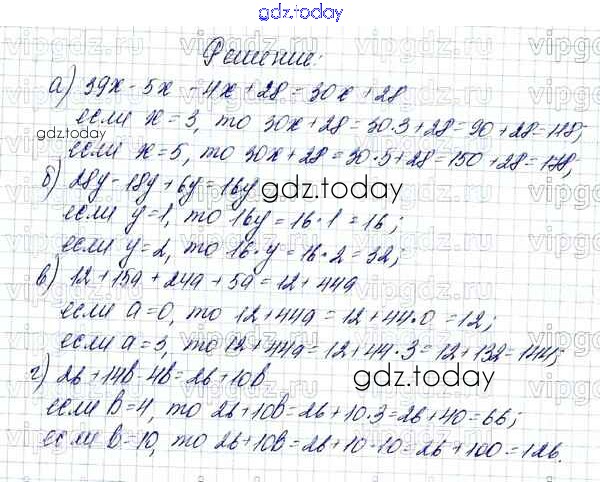 gdz.today
Решение:
а) 39x - 5x - 4x + 28 = 30x + 28
если x = 3, то 30x + 28 = 30·3 + 28 = 90 + 28 = 118;
gdz.today
если x = 5, то 30x + 28 = 30·5 + 28 = 150 + 28 = 178;
б) 28y - 18y + 6y = 16y
gdz.today
если y = 1, то 16y = 16·1 = 16;
если y = 2, то 16·y = 16·2 = 32;
в) 12 + 15a + 24a + 5a = 12 + 44a
если a = 0, то 12 + 44a = 12 + 44·0 = 12;
если a = 3, то 12 + 44a = 12 + 44·3 = 12 + 132 = 144;
г) 26 + 14b - 4b = 26 + 10b
gdz.today
если b = 4, то 26 + 10b = 26 + 10·3 = 26 + 40 = 66;
если b = 10, то 26 + 10b = 26 + 10·10 = 26 + 100 = 126.